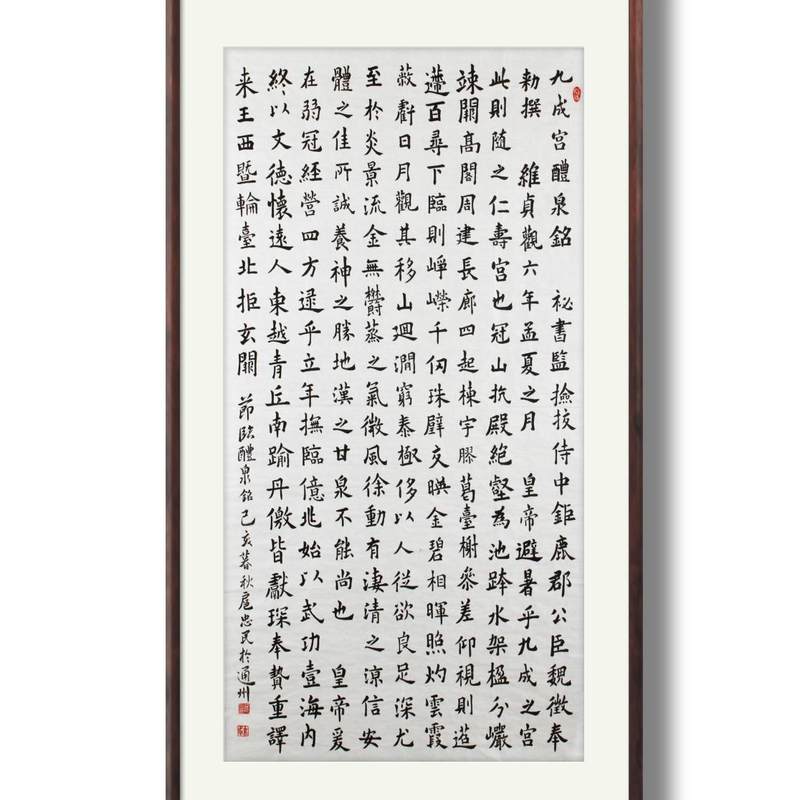 九成宫醴泉銘 祕書監撿挍侍中鉅鹿郡公臣魏徵奉
勑撰 維貞觀六年孟夏之月 皇帝避暑乎九成之宫
此則随之仁壽宫也冠山抗殿絶壑為池跨水架楹分巖
竦闕高閣周建長廊四起棟宇膠葛臺榭參差仰視則迢
遰百尋下臨則崢嶸千仞珠璧交暎金碧相暉照灼雲霞
蔽虧日月觀其移山迴澗窮泰極侈以人從欲良足深尤
至於炎景流金無鬱蒸之氣微風徐動有淒清之涼信安
體之佳所誠養神之勝地漢之甘泉不能尚也 皇帝爰
在弱冠經營四方逮乎立年撫臨億兆始以武功壹海内
終以文德懷遠人東越青丘南踰丹儌皆獻琛奉贄重譯
来王西暨輪臺北拒玄闕 節臨醴泉銘己亥暮秋扈忠民於通州